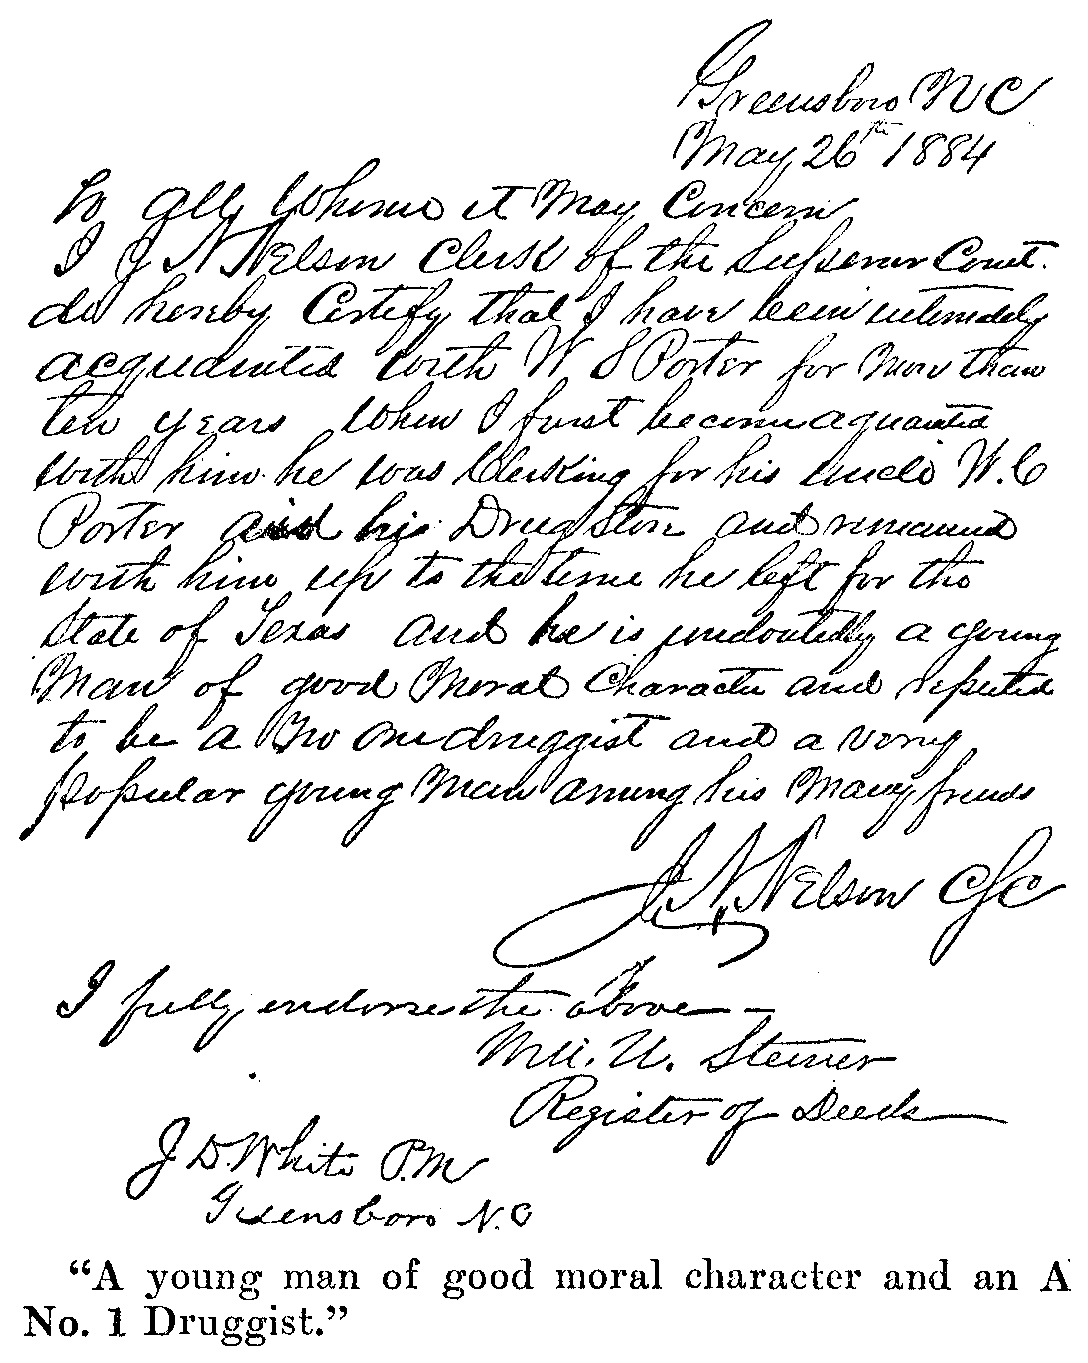 Greensboro N C
May 26th 1884
To All Whome it May Concern
I J N Nelson Clerk of the Superior Court.
do hereby Certify that I have been intimately
acquainted with W S Porter for More than
ten years When I first become aquainted
with him he was Clerking for his uncle W. C
Porter and his Drug Store and remained
with him up to the time he left for the
State of Texas and he is undoutedly a young
Man of good Moral Character and reputed
to be a No One druggist and a very
popular young Man among his Many friends
J. N. Nelson CSC
I fully endorse the above —
U. Steiner
Register of Deeds
J D. White P.M
Greensboro N. C
"A young man of good moral character and an A
No. 1 Druggist."